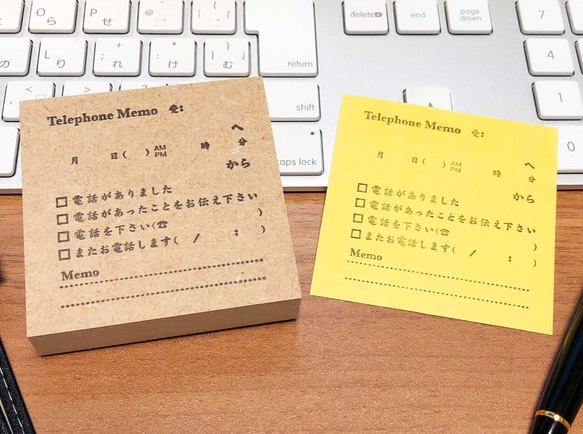 delete
end
page down
7
return
4
shift
1
caps lock
0
Telephone Memo 受:
へ
月 日( ) AM PM 時 分
から
□電話がありました
□電話があったことをお伝え下さい
□電話を下さい(☎ )
□またお電話します( / : )
Memo
Telephone Memo 受:
へ
月 日( ) AM PM 時 分
から
□電話がありました
□電話があったことをお伝え下さい
□電話を下さい(☎ )
□またお電話します( / : )
Memo